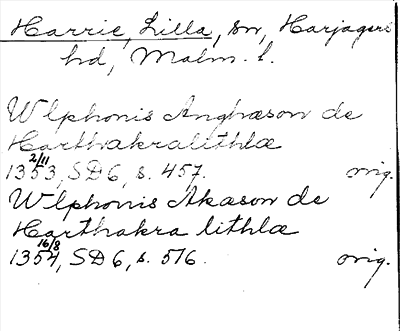 Harrie, Lilla, sn, Harjagers
hd, Malm. l.
Wlphonis Anghæson de
Harthakralithlæ
2/11
1353, SD 6, s. 457. orig.
Wlphonis Akæson de
Harthakra lithlæ
16/8
1354, SD 6, s. 516. orig.